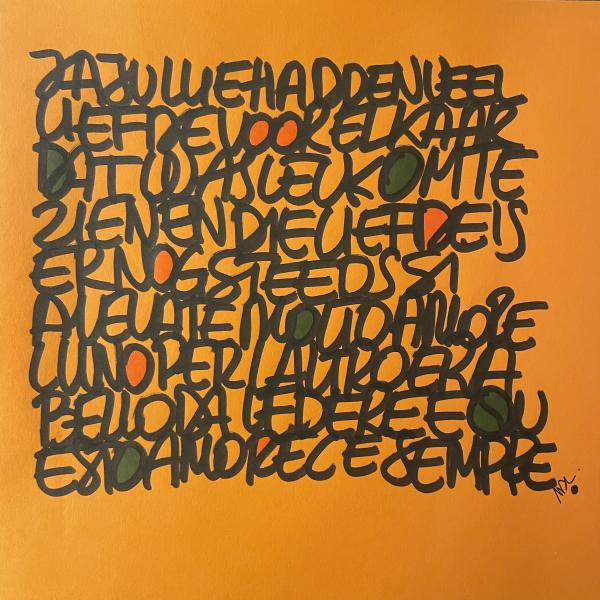 JA JULLIE HADDEN VEEL
LIEFDE VOOR ELKAAR
DAT WAS LEUK OM TE
ZIEN EN DIE LIEFDE IS
ER NOG STEEDS SI
AVEVATE MOLTO AMORE
L'UNO PER L'ALTRO ERA
BELLO DA VEDERE E QU
ESTO AMORE C'E SEMPRE